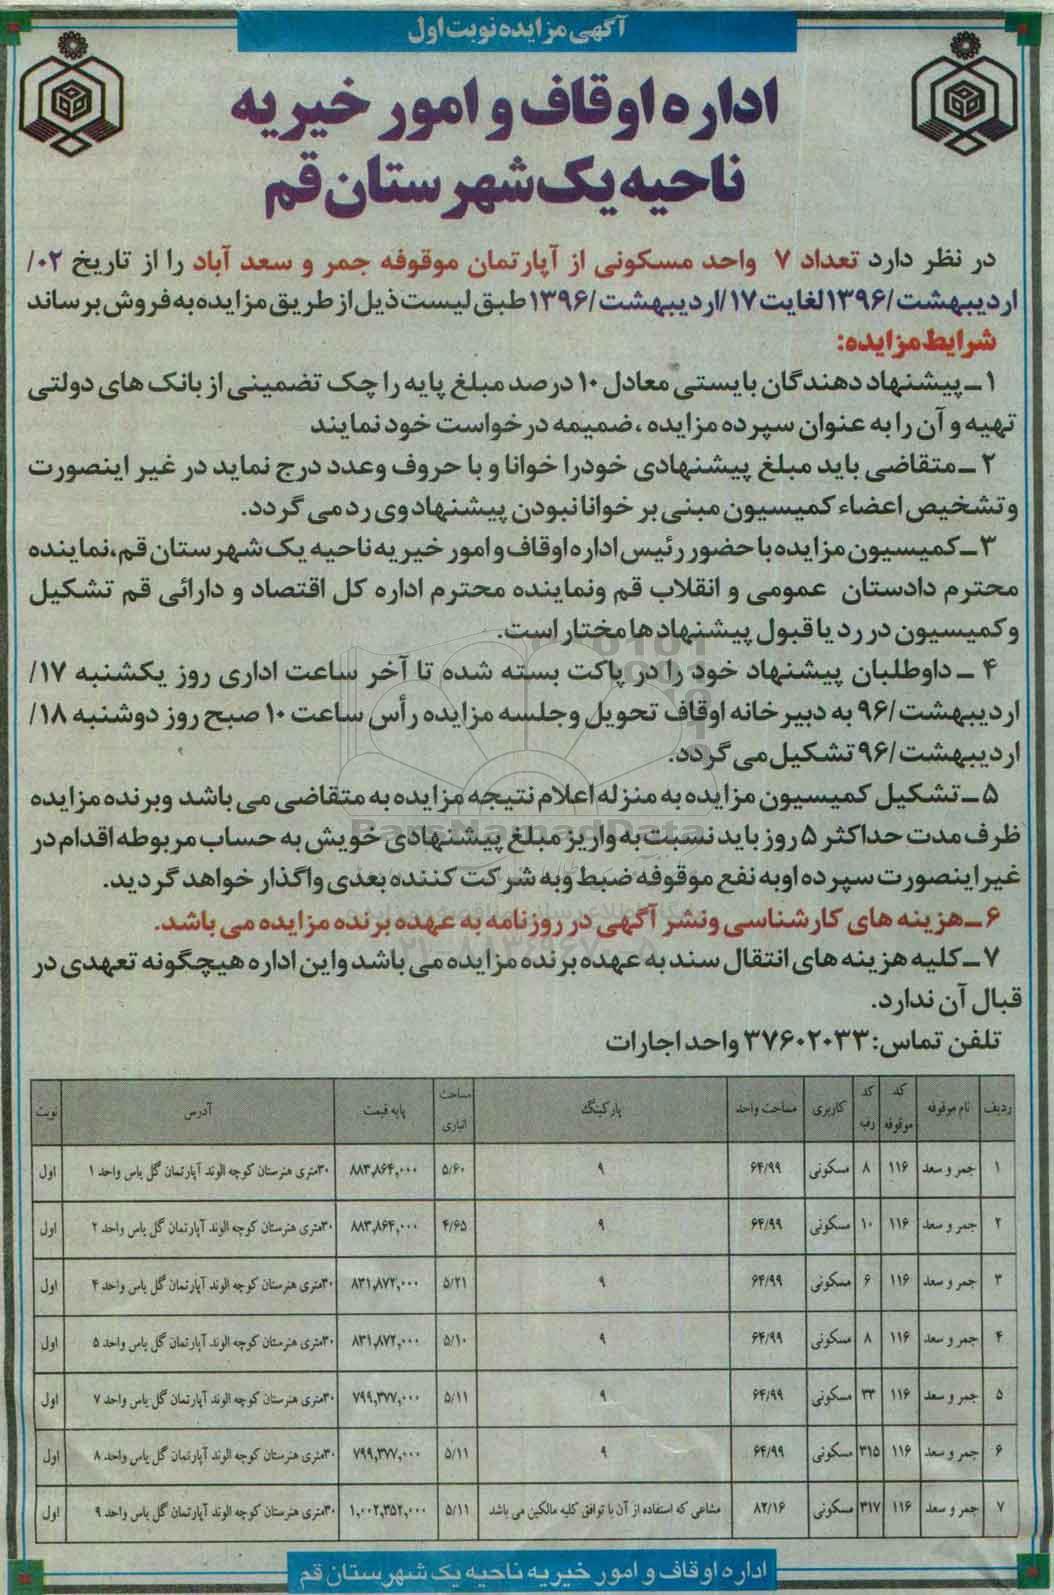 آگهی مزایده نوبت اول
اداره اوقاف و امور خیریه
ناحیه یک شهرستان قم
در نظر دارد تعداد ۷ واحد مسکونی از آپارتمان موقوفه جمر و سعد آباد را از تاریخ ۰۲/
اردیبهشت/۱۳۹۶ لغایت ۱۷/اردیبهشت/۱۳۹۶ طبق لیست ذیل از طریق مزایده به فروش برساند
شرایط مزایده:
۱ـ پیشنهاد دهندگان بایستی معادل ۱۰ درصد مبلغ پایه را چک تضمینی از بانک های دولتی
تهیه و آن را به عنوان سپرده مزایده ، ضمیمه درخواست خود نمایند
۲ـ متقاضی باید مبلغ پیشنهادی خودرا خوانا و با حروف وعدد درج نماید در غیر اینصورت
وتشخیص اعضاء کمیسیون مبنی بر خوانا نبودن پیشنهاد وی رد می گردد.
۳ـ کمیسیون مزایده با حضور رئیس اداره اوقاف و امور خیریه ناحیه یک شهرستان قم،نماینده
محترم دادستان عمومی و انقلاب قم ونماینده محترم اداره کل اقتصاد و دارائی قم تشکیل
وکمیسیون در رد یا قبول پیشنهاد ها مختار است.
۴ـ داوطلبان پیشنهاد خود را در پاکت بسته شده تا آخر ساعت اداری روز یکشنبه ۱۷/
اردیبهشت/۹۶ به دبیرخانه اوقاف تحویل وجلسه مزایده رأس ساعت ۱۰ صبح روز دوشنبه ۱۸/
اردیبهشت/۹۶ تشکیل می گردد.
۵ـ تشکیل کمیسیون مزایده به منزله اعلام نتیجه مزایده به متقاضی می باشد وبرنده مزایده
ظرف مدت حداکثر ۵ روز باید نسبت به واریز مبلغ پیشنهادی خویش به حساب مربوطه اقدام در
غیر اینصورت سپرده اوبه نفع موقوفه ضبط وبه شرکت کننده بعدی واگذار خواهد گردید.
۶ـ هزینه های کارشناسی ونشر آگهی در روزنامه به عهده برنده مزایده می باشد.
۷ـ کلیه هزینه های انتقال سند به عهده برنده مزایده می باشد واین اداره هیچگونه تعهدی در
قبال آن ندارد.
تلفن تماس: ۳۷۶۰۲۰۳۳ واحد اجارات
ردیف نام موقوفه کد موقوفه کد رقبه کاربری مساحت واحد پارکینگ مساحت انباری پایه قیمت آدرس نوبت
۱ جمر و سعد ۱۱۶ ۸ مسکونی ۶۴/۹۹ ۹ ۵/۶۰ ۸۸۳,۸۶۴,۰۰۰ ۳۰متری هنرستان کوچه الوند آپارتمان گل یاس واحد ۱ اول
۲ جمر و سعد ۱۱۶ ۱۰ مسکونی ۶۴/۹۹ ۹ ۴/۶۵ ۸۸۳,۸۶۴,۰۰۰ ۳۰متری هنرستان کوچه الوند آپارتمان گل یاس واحد ۲ اول
۳ جمر و سعد ۱۱۶ ۶ مسکونی ۶۴/۹۹ ۹ ۵/۲۱ ۸۳۱,۸۷۲,۰۰۰ ۳۰متری هنرستان کوچه الوند آپارتمان گل یاس واحد ۴ اول
۴ جمر و سعد ۱۱۶ ۸ مسکونی ۶۴/۹۹ ۹ ۵/۱۰ ۸۳۱,۸۷۲,۰۰۰ ۳۰متری هنرستان کوچه الوند آپارتمان گل یاس واحد ۵ اول
۵ جمر و سعد ۱۱۶ ۳۳ مسکونی ۶۴/۹۹ ۹ ۵/۱۱ ۷۹۹,۳۷۷,۰۰۰ ۳۰متری هنرستان کوچه الوند آپارتمان گل یاس واحد ۷ اول
۶ جمر و سعد ۱۱۶ ۳۱۵ مسکونی ۶۴/۹۹ ۹ ۵/۱۱ ۷۹۹,۳۷۷,۰۰۰ ۳۰متری هنرستان کوچه الوند آپارتمان گل یاس واحد ۸ اول
۷ جمر و سعد ۱۱۶ ۳۱۷ مسکونی ۸۲/۱۶ مشاعی که استفاده از آن با توافق کلیه مالکین می باشد ۵/۱۱ ۱,۰۰۲,۳۵۲,۰۰۰ ۳۰متری هنرستان کوچه الوند آپارتمان گل یاس واحد ۹ اول
اداره اوقاف و امور خیریه ناحیه یک شهرستان قم